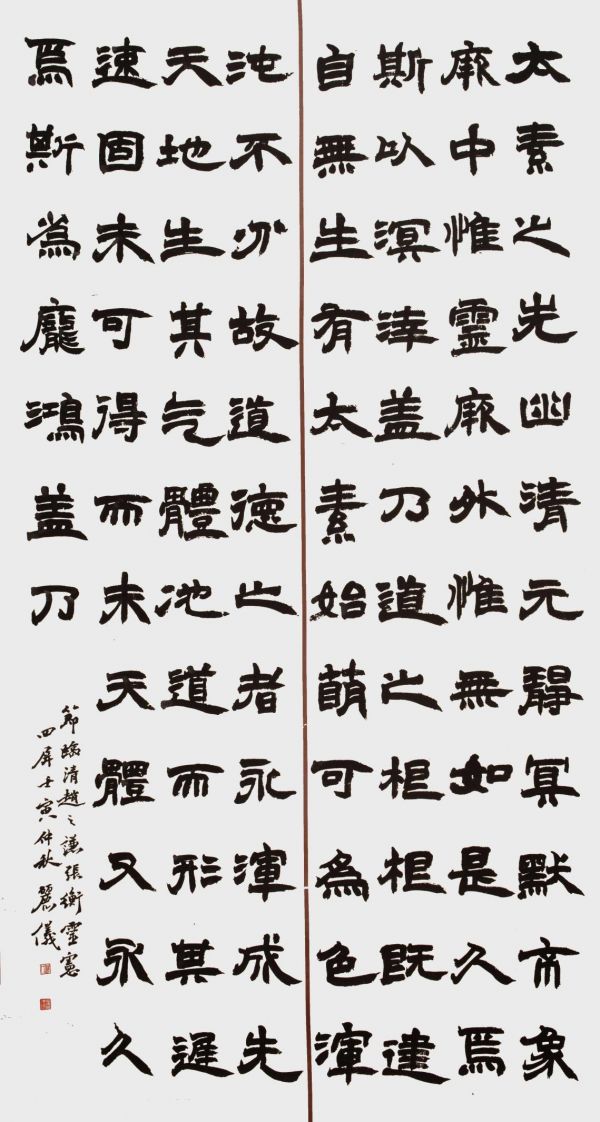 太素之先幽清元靜冥默象
厥中惟靈厥外惟無如是久焉
斯以溟涬盖乃道之根根既建
自無生有太素始萌可為色渾
沌不分故道德之者永渾成先
天地生其气體池道而形其遲
速固未可得而未天體又永久
焉斯為龐鴻盖乃
節臨清趙之謙張衡靈憲
四屏壬寅仲秋 麗儀